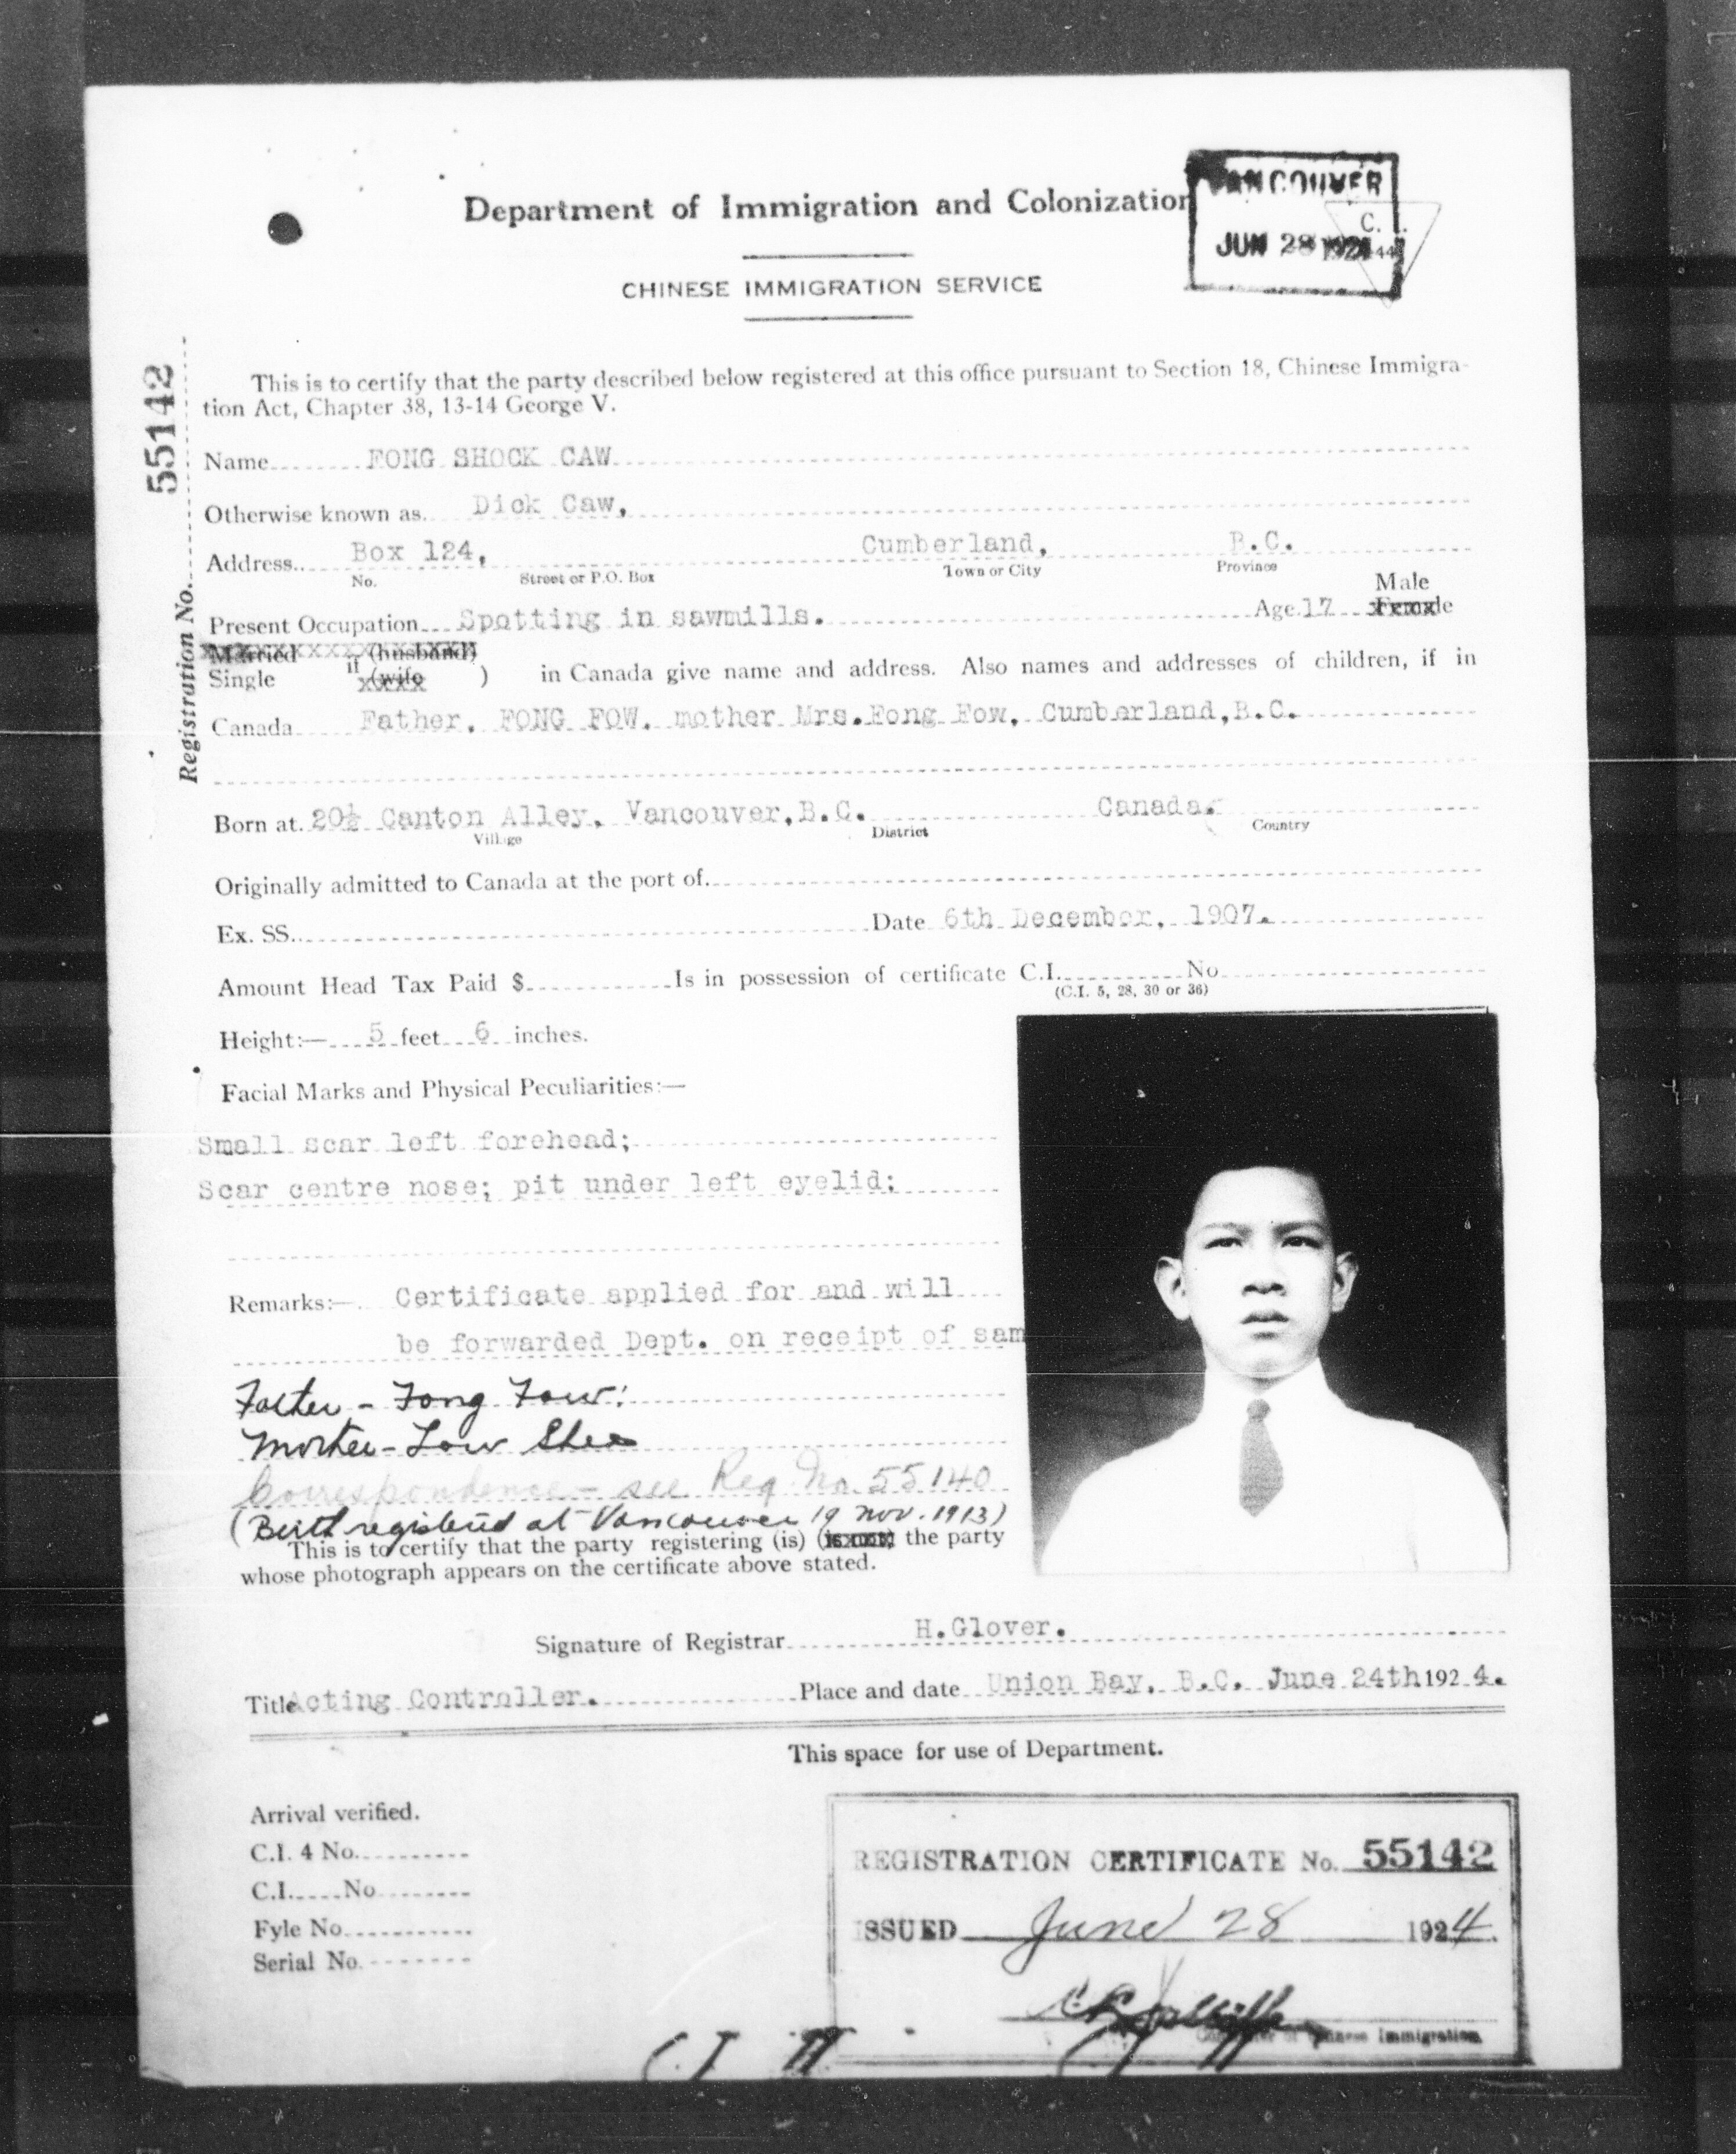 Department of Immigration and Colonization
VANCOUVER
JUN 28 1924
C. I. 44
CHINESE IMMIGRATION SERVICE
Registration No. 55142
This is to certify that the party described below registered at this office pursuant to Section 18, Chinese Immigra-
tion Act, Chapter 38, 13-14 George V.
Name FONG SHOCK CAW
Otherwise known as Dick Caw,
Address Box 124, Cumberland, B.C.
No. Street or P.O. Box Town or City Province
Male
Present Occupation Spotting in sawmills. Age 17 Female
Married (husband)
Single if (wife ) in Canada give name and address. Also names and addresses of children, if in
Canada Father, FONG FOW, mother Mrs.Fong Fow, Cumberland,B.C.
Born at 20½ Canton Alley, Vancouver,B.C. Canada.
Village District Country
Originally admitted to Canada at the port of
Ex. SS. Date 6th December, 1907.
Amount Head Tax Paid $ Is in possession of certificate C.I. No
(C.I. 5, 28, 30 or 36)
Height:— 5 feet 6 inches.
Facial Marks and Physical Peculiarities:—
Small scar left forehead;
Scar centre nose; pit under left eyelid;
Remarks:— Certificate applied for and will
be forwarded Dept. on receipt of sam
Father - Fong Fow:
Mother - Low Shee
Correspondence - see Reg. No. 55140
(Birth registered at Vancouver 19 Nov. 1913)
This is to certify that the party registering (is) (is not) the party
whose photograph appears on the certificate above stated.
Signature of Registrar H.Glover.
Title Acting Controller. Place and date Union Bay, B.C. June 24th 1924.
This space for use of Department.
Arrival verified.
C.I. 4 No.
C.I. No
Fyle No.
Serial No.
REGISTRATION CERTIFICATE No. 55142
ISSUED June 28 1924.
Controller of Chinese Immigration